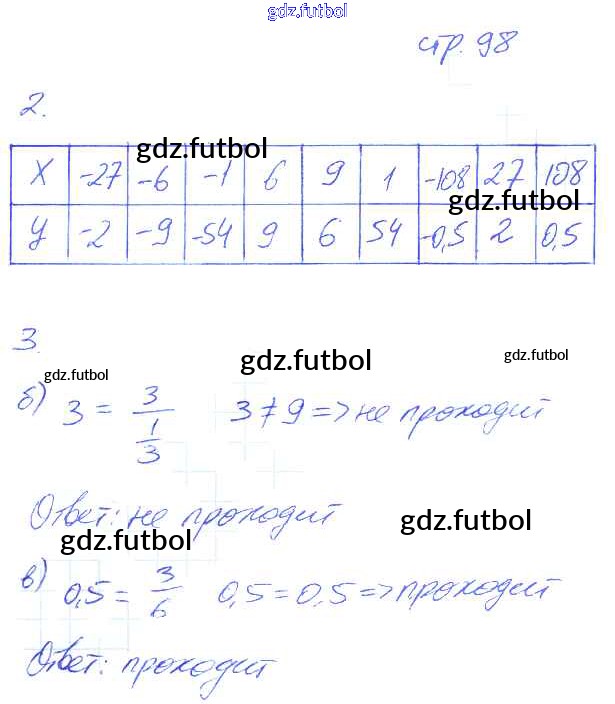 gdz.futbol
стр. 98
2.
gdz.futbol
X -27 -6 -1 6 9 1 -108 27 108
gdz.futbol
У -2 -9 -54 9 6 54 -0,5 2 0,5
3.
gdz.futbol gdz.futbol gdz.futbol
б) 3 = 3/(1/3) 3 ≠ 9 => не проходит
Ответ: не проходит
gdz.futbol gdz.futbol
в) 0,5 = 3/6 0,5 = 0,5 => проходит
Ответ: проходит